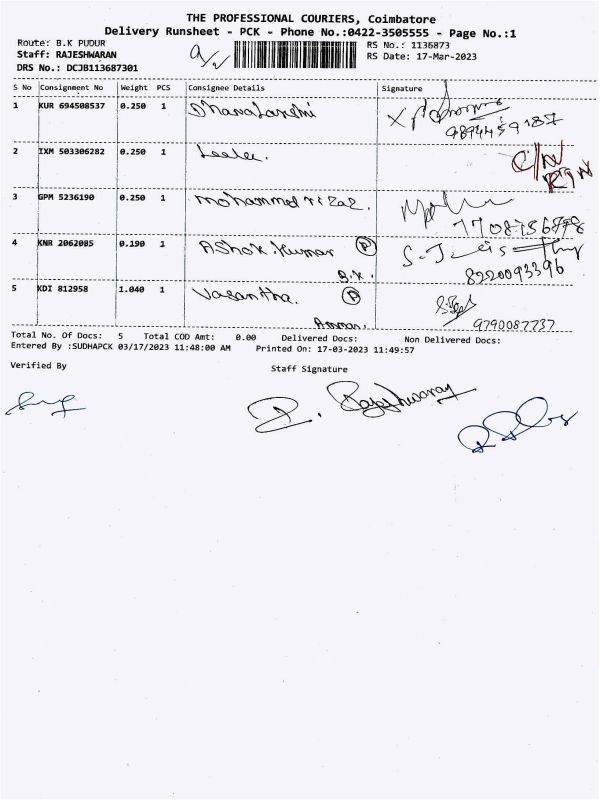 THE PROFESSIONAL COURIERS, Coimbatore
Delivery Runsheet - PCK - Phone No.:0422-3505555 - Page No.:1
Route: B.K PUDUR
RS No.: 1136873
Staff: RAJESHWARAN
RS Date: 17-Mar-2023
DRS No.: DCJB113687301
S No Consignment No Weight PCS Consignee Details Signature
1 KUR 694508537 0.250 1 Dhanalakshmi
9894459187
2 IXM 503306282 0.250 1 Leela.
C/N
RTN
3 GPM 5236190 0.250 1 mohammed rizaz.
7708756898
4 KNR 2062085 0.190 1 AShok.kumar P
B.K.
8220093396
5 KDI 812958 1.040 1 Vasantha. P
9790087737
Total No. Of Docs: 5 Total COD Amt: 0.00 Delivered Docs: Non Delivered Docs:
Entered By :SUDHAPCK 03/17/2023 11:48:00 AM Printed On: 17-03-2023 11:49:57
Verified By Staff Signature
Rajeshwaran